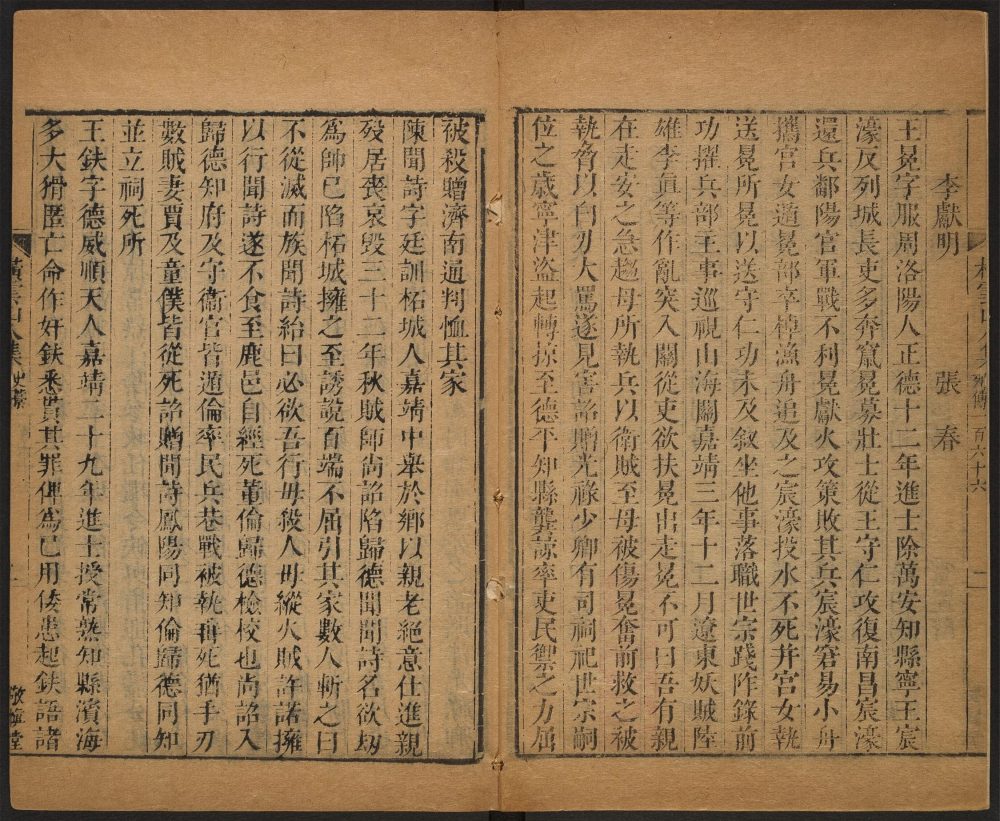 李獻明 張春
王冕字服周洛陽人正德十二年進士除萬安知縣寧王宸
濠反列城長吏多奔竄冕募壯士從王守仁攻復南昌宸濠
還兵鄱陽官軍戰不利冕獻火攻策敗其兵宸濠窘易小舟
攜宮女遁冕部卒棹漁舟追及之宸濠投水不死并宮女執
送冕所冕以送守仁功未及敘坐他事落職世宗踐阼錄前
功擢兵部主事巡視山海關嘉靖三年十二月遼東妖賊陸
雄李眞等作亂突入關從吏欲扶冕出走冕不可曰吾有親
在走安之急趨母所執兵以衛賊至母被傷冕奮前救之被
執脅以白刃大罵遂見害詔贈光祿少卿有司祠祀世宗嗣
位之歲寧津盜起轉掠至德平知縣龔諒率吏民禦之力屈
被殺贈濟南通判恤其家
陳聞詩字廷訓柘城人嘉靖中舉於鄉以親老絕意仕進親
歿居喪哀毀三十二年秋賊師尙詔陷歸德聞聞詩名欲劫
爲帥已陷柘城擁之至誘說百端不屈引其家數人斬之曰
不從滅而族聞詩紿曰必欲吾行毋殺人毋縱火賊許諾擁
以行聞詩遂不食至鹿邑自經死董倫歸德檢校也尙詔入
歸德知府及守衞官皆遁倫率民兵巷戰被執垂死猶手刃
數賊妻賈及童僕皆從死詔贈聞詩鳳陽同知倫歸德同知
並立祠死所
王鈇字德威順天人嘉靖二十九年進士授常熟知縣濱海
多大猾匿亡命作奸鈇悉貰其罪俾爲己用倭患起鈇語諸
敬愼堂